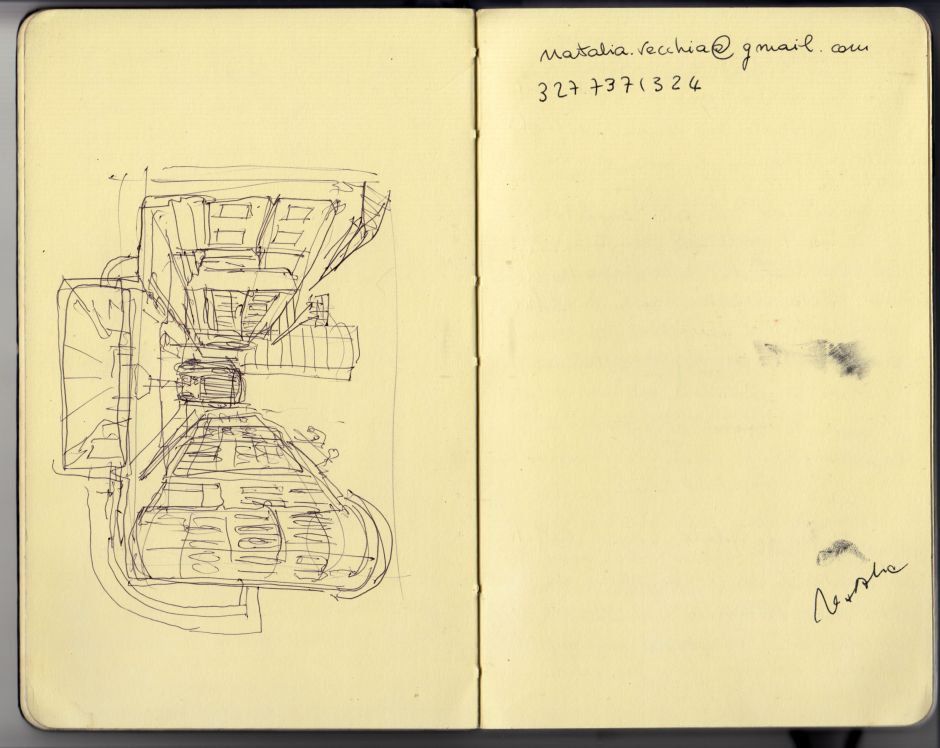 natalia.vecchia@gmail.com
327 7371324
Natalia